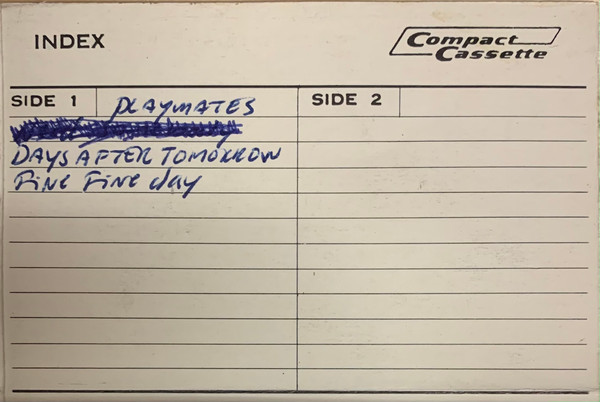 INDEX
Compact Cassette
SIDE 1 PLAYMATES
SIDE 2
DAYS AFTER TOMORROW
Fine Fine day